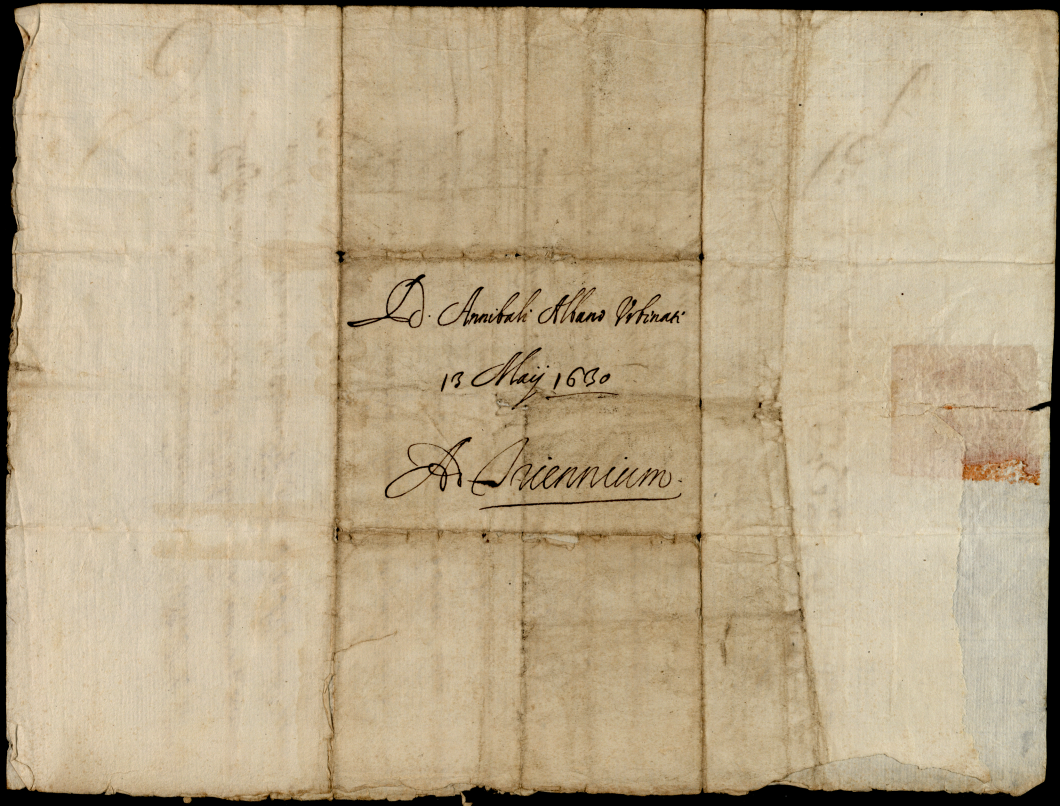 D. Annibali Albano Vrbinati
13 Maij 1630
Ad Triennium.